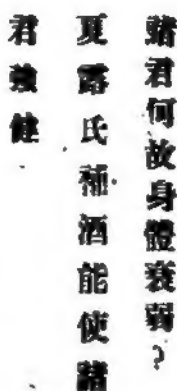 諸君何故身體衰弱？
夏露氏補酒能使諸
君強健